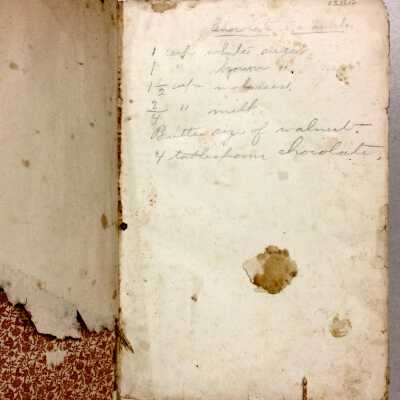 1 cup white sugar
1 " brown "
1 1/2 cup molasses.
3/4 " milk.
Butter size of walnut.
4 tablespoons chocolate.